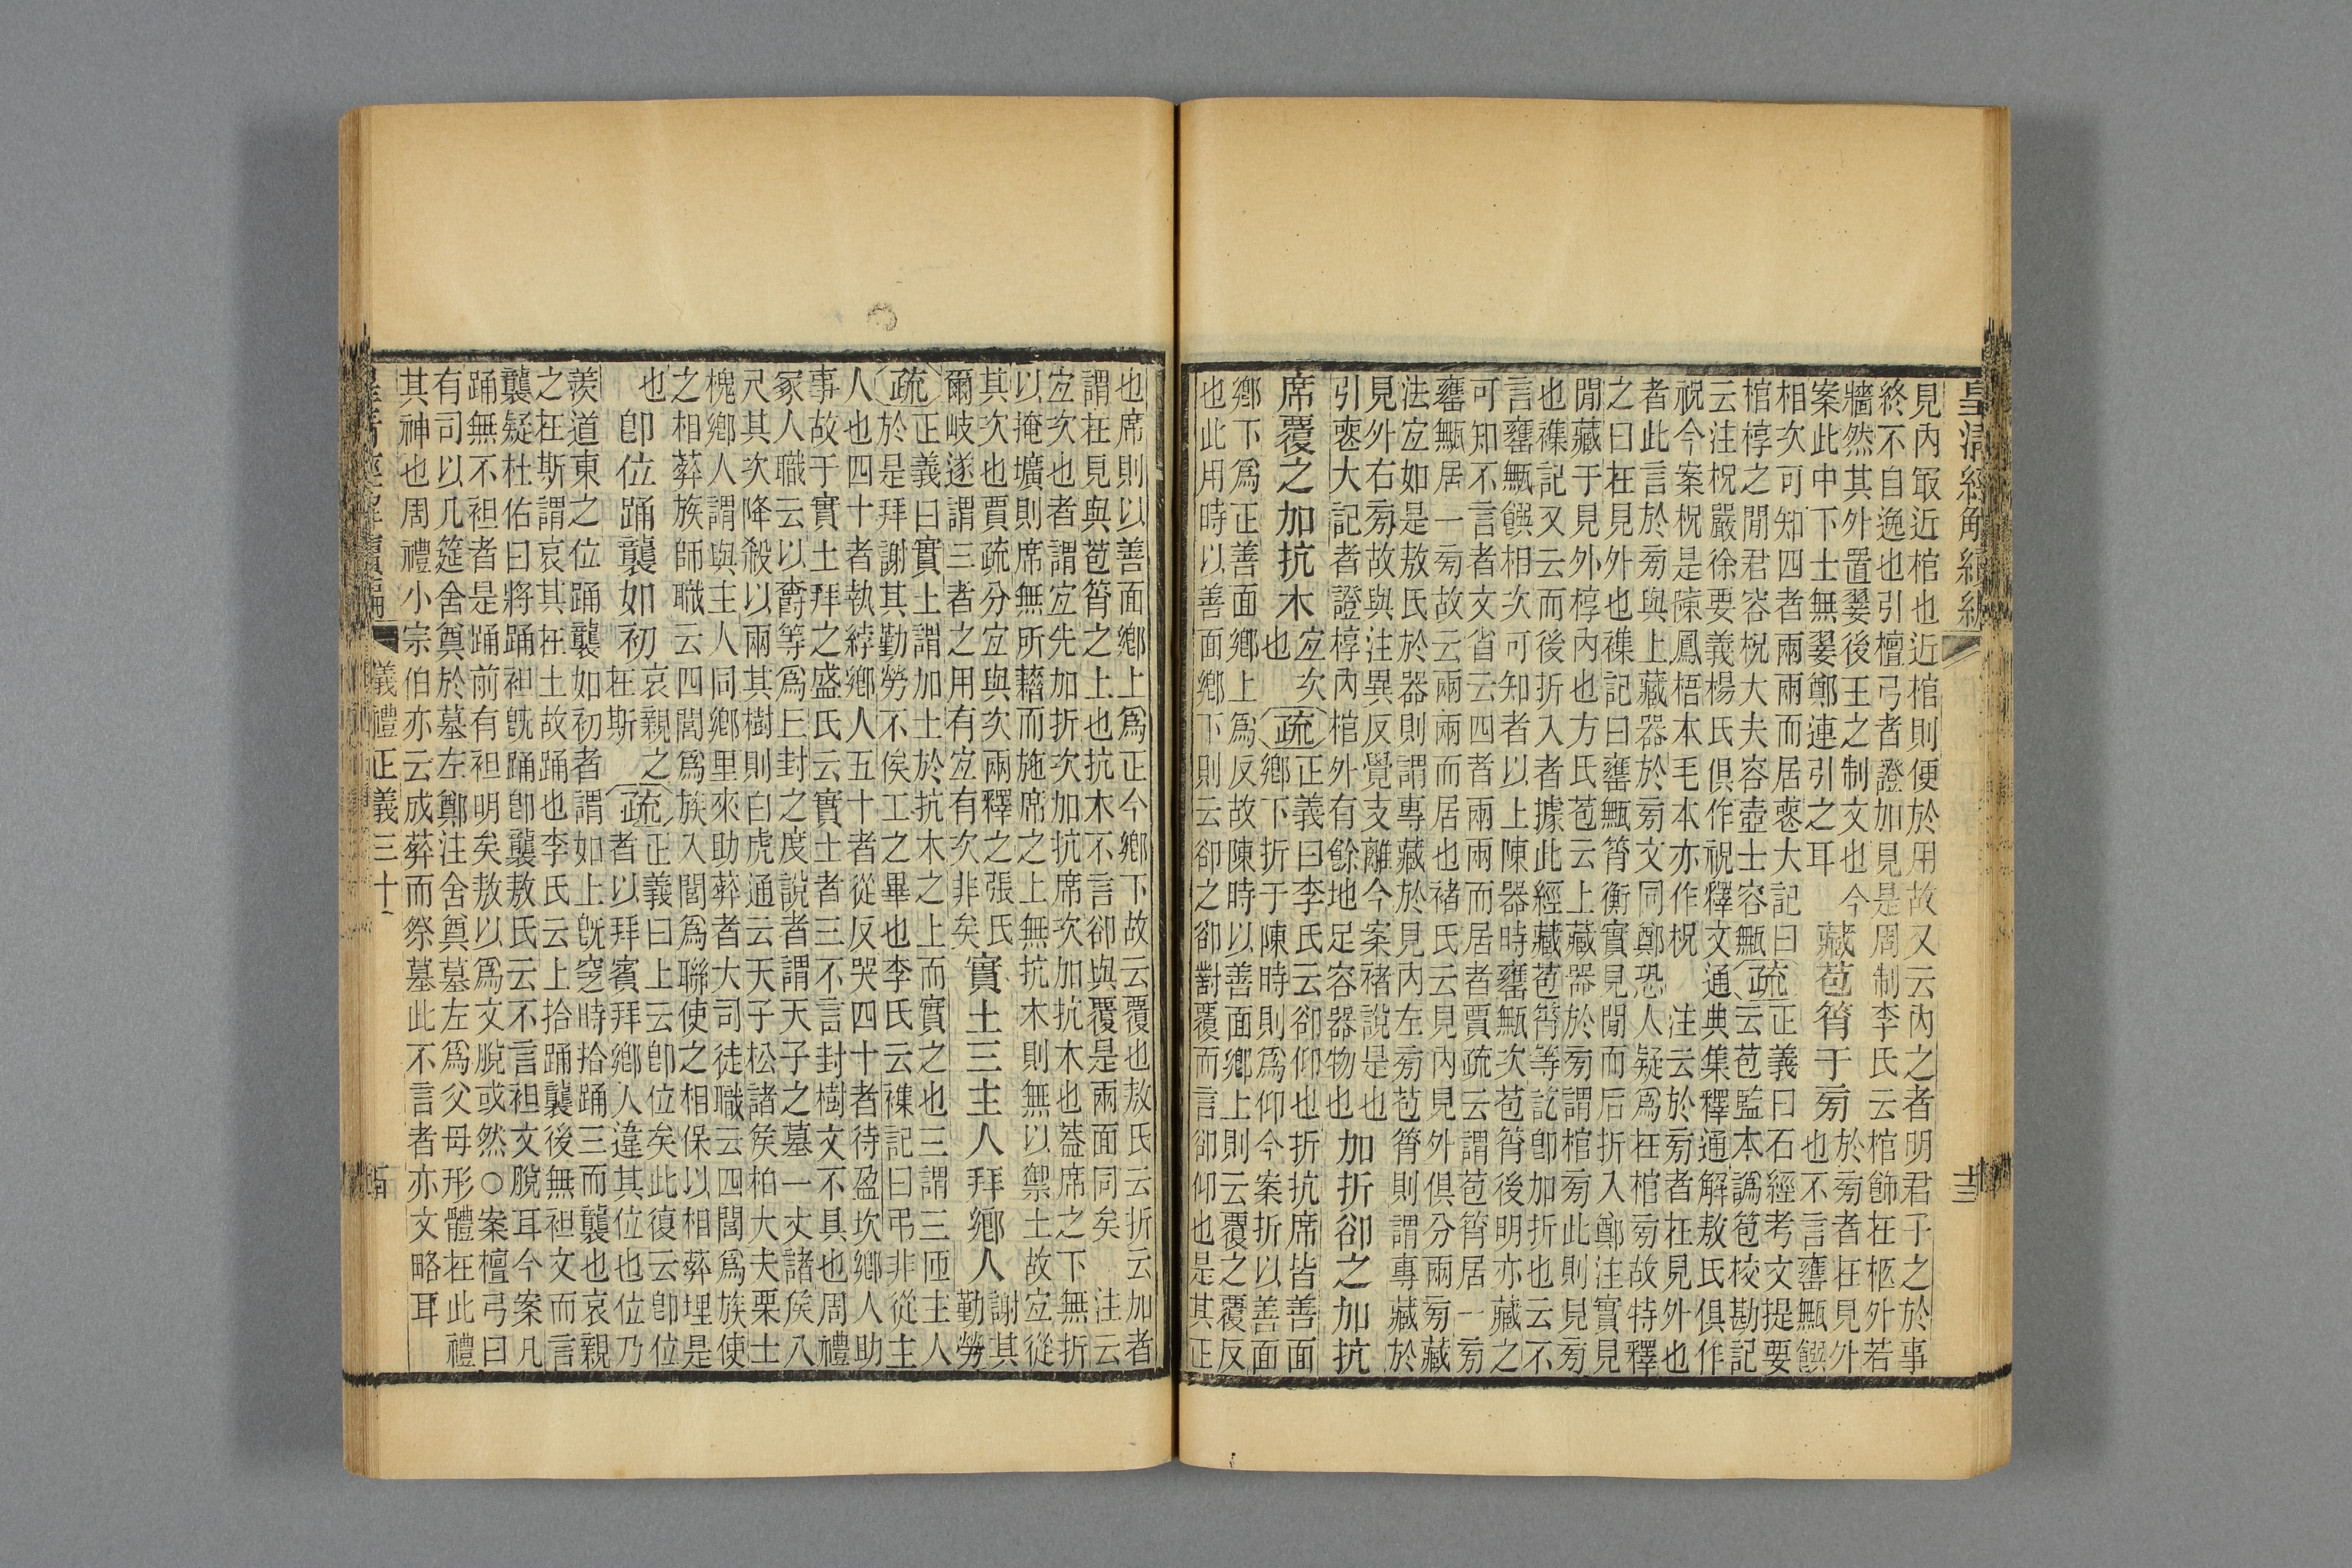 皇清經解續編
見內冣近棺也近棺則便於用故又云內之者明君子之於事
終不自逸也引檀弓者證加見是周制李氏云棺飾在柩外若
牆然其外置翣後王之制文也今
案此中下士無翣鄭連引之耳
藏苞筲于旁
於旁者在見外
也不言罋甒饌
相次可知四者兩兩而居䘮大記曰
棺椁之閒君容柷大夫容壺士容甒
疏
正義曰石經考文提要
云苞監本譌笣校勘記
云注柷嚴徐要義楊氏俱作祝釋文通典集釋通解敖氏俱作
柷今案柷是陳鳳梧本毛本亦作柷 注云於旁者在見外也
者此言於旁與上藏器於旁文同鄭恐人疑爲在棺旁故特釋
之曰在見外也襍記曰罋甒筲衡實見閒而后折入鄭注實見
閒藏于見外椁內也方氏苞云上藏器於旁謂棺旁此則見旁
也襍記又云而後折入者據此經藏苞筲等訖卽加折也云不
言罋甒饌相次可知者以上陳器時罋甒次苞筲後明亦藏之
可知不言者文省云四者兩兩而居者賈疏云謂苞筲居一旁
罋甒居一旁故云兩兩而居也褚氏云見內見外俱分兩旁藏
法宐如是敖氏於器則謂專藏於見內左旁苞筲則謂專藏於
見外右旁故與注異反覺支離今案褚說是也
引䘮大記者證椁內棺外有餘地足容器物也
加折卻之加抗
席覆之加抗木
宐次
也
疏
正義曰李氏云卻仰也折抗席皆善面
鄉下折于陳時則爲仰今案折以善面
鄉下爲正善面鄉上爲反故陳時以善面鄉上則云覆之覆反
也此用時以善面鄉下則云卻之卻對覆而言卻仰也是其正
十三
也席則以善面鄉上爲正今鄉下故云覆也敖氏云折云加者
謂在見與苞筲之上也抗木不言卻與覆是兩面同矣 注云
宐次也者謂宐先加折次加抗席次加抗木也葢席之下無折
以掩壙則席無所藉而施席之上無抗木則無以禦土故宐從
其次也賈疏分宐與次兩釋之張氏
爾岐遂謂三者之用有宐有次非矣
實土三主人拜鄉人
謝其
勤勞
疏
正義曰實土謂加土於抗木之上而實之也三謂三匝主人
於是拜謝其勤勞不俟工之畢也李氏云襍記曰弔非從主
人也四十者執綍鄉人五十者從反哭四十者待盈坎鄉人助
事故于實土拜之盛氏云實土者三不言封樹文不具也周禮
冢人職云以爵等爲丘封之度說者謂天子之墓一丈諸侯八
尺其次降殺以兩其樹則白虎通云天子松諸侯柏大夫栗士
槐鄉人謂與主人同鄉里來助葬者大司徒職云四閭爲族使
之相葬族師職云四閭爲族八閭爲聯使之相保以相葬埋是
也
卽位踊襲如初
哀親之
在斯
疏
正義曰上云卽位矣此復云卽位
者以拜賓拜鄉人違其位也位乃
羨道東之位踊襲如初者謂如上旣窆時拾踊三而襲也哀親
之在斯謂哀其在土故踊也李氏云上拾踊襲後無袒文而言
襲疑杜佑曰將踊袒旣踊卽襲敖氏云不言袒文脫耳今案凡
踊無不袒者是踊前有袒明矣敖以爲文脫或然○案檀弓曰
有司以几筵舍奠於墓左鄭注舍奠墓左爲父母形體在此禮
其神也周禮小宗伯亦云成葬而祭墓此不言者亦文略耳
皇清經解續編
儀禮正義三十